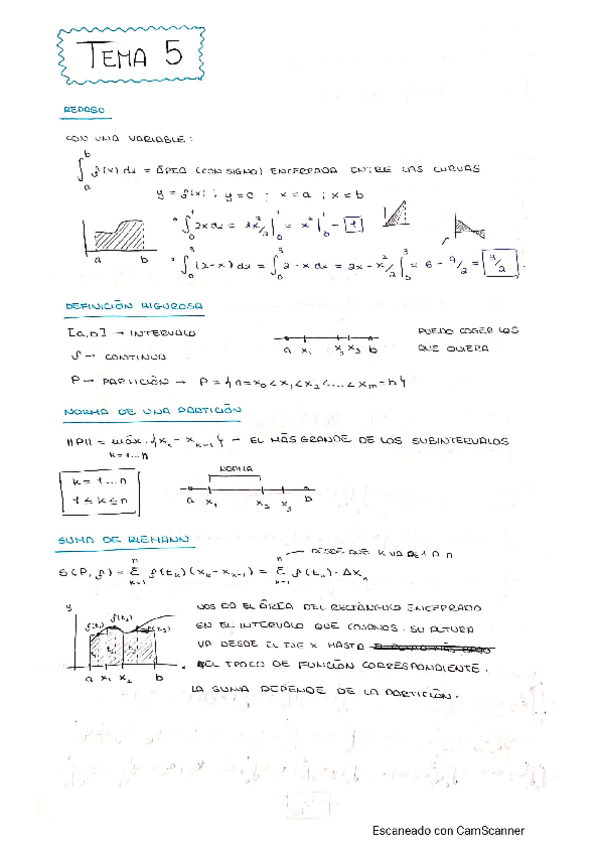 TEMA 5
REPASO
CON UNA VARIABLE:
∫_a^b f(x) dx = ÁREA (CON SIGNO) ENCERRADA ENTRE LAS CURVAS
y = f(x) ; y = 0 ; x = a ; x = b
a b
∫_0^1 2x dx = 2x²/2 |_0^1 = x² |_0^1 = 1
∫_0^3 (2-x) dx = ∫_0^3 2 - x dx = 2x - x²/2 |_0^3 = 6 - 9/2 = 3/2
DEFINICIÓN RIGUROSA
[a,b] → INTERVALO
a x₁ x₂ x₃ b
PUEDO COGER LOS
QUE QUIERA
f → CONTINUA
P → PARTICIÓN → P = {a = x₀ < x₁ < x₂ < .... < xₘ = b}
NORMA DE UNA PARTICIÓN
||P|| = máx. {xₖ - xₖ₋₁} → EL MÁS GRANDE DE LOS SUBINTERVALOS
k=1...n
k = 1...n
1 ≤ k ≤ n
NORMA
a x₁ x₂ x₃ b
SUMA DE RIEMANN
DESDE QUE K VA DE 1 A n
S(P, f) = Σ_{k=1}^n f(tₖ)(xₖ - xₖ₋₁) = Σ_{k=1}^n f(tₖ) · Δxₖ
y
f(t₁) f(t₂) f(t₃)
a x₁ x₂ b x
NOS DA EL ÁREA DEL RECTÁNGULO ENCERRADO
EN EL INTERVALO QUE COJAMOS. SU ALTURA
VA DESDE EL EJE X HASTA
DEL TROZO DE FUNCIÓN CORRESPONDIENTE.
LA SUMA DEPENDE DE LA PARTICIÓN.
Escaneado con CamScanner